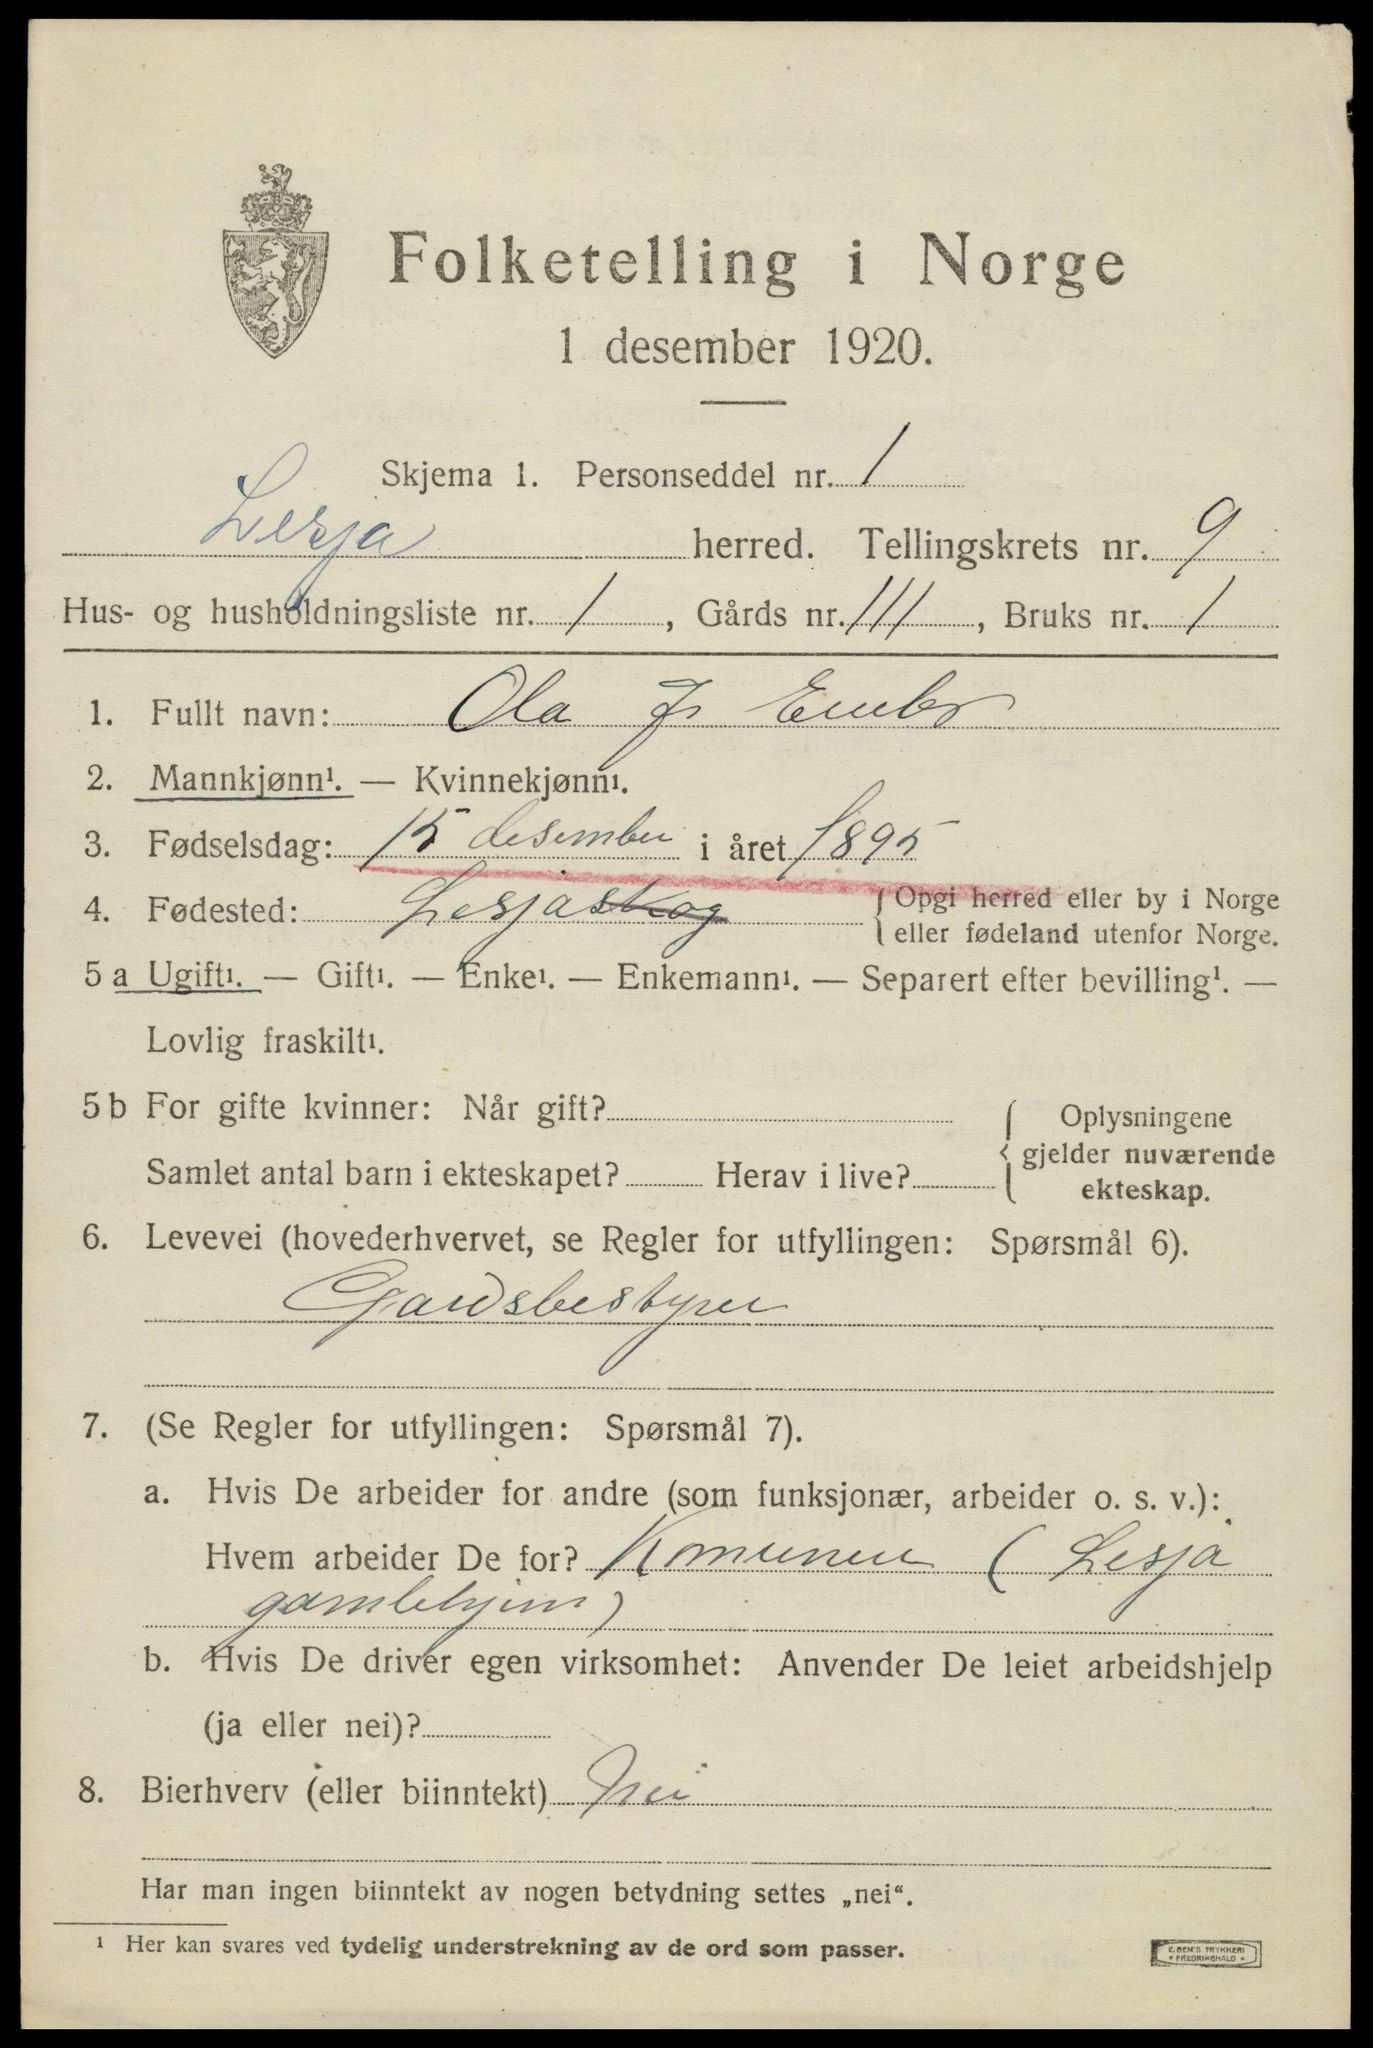 Folketelling i Norge
1 desember 1920.
Skjema 1. Personseddel nr. 1
Lesja herred. Tellingskrets nr. 9
Hus- og husholdningsliste nr. 1, Gårds nr. 111, Bruks nr. 1
1. Fullt navn: Ola J.
2. Mannkjønn¹. — Kvinnekjønn¹.
3. Fødselsdag: 15 desember i året 1895
4. Fødested: Lesjaskog { Opgi herred eller by i Norge
eller fødeland utenfor Norge.
5 a Ugift¹. — Gift¹. — Enke¹. — Enkemann¹. — Separert efter bevilling¹. —
Lovlig fraskilt¹.
5 b For gifte kvinner: Når gift? { Oplysningene
gjelder nuværende
Samlet antal barn i ekteskapet? Herav i live? ekteskap.
6. Levevei (hovederhvervet, se Regler for utfyllingen: Spørsmål 6).
Gardsbestyrer
7. (Se Regler for utfyllingen: Spørsmål 7).
a. Hvis De arbeider for andre (som funksjonær, arbeider o. s. v.):
Hvem arbeider De for? Komunen (Lesja
gamlehjem)
b. Hvis De driver egen virksomhet: Anvender De leiet arbeidshjelp
(ja eller nei)?
8. Bierhverv (eller biinntekt) Nei
Har man ingen biinntekt av nogen betydning settes „nei“.
¹ Her kan svares ved tydelig understrekning av de ord som passer.
E. SEM'S TRYKKERI
• FREDRIKSHALD •